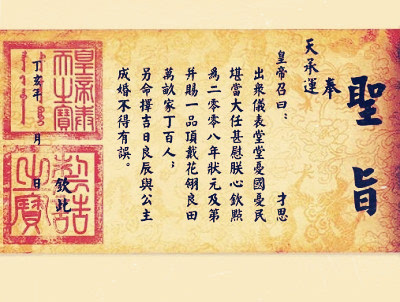 聖旨
奉
天承運
皇帝召曰：
才思
出衆儀表堂堂憂國憂民
堪當大任甚慰朕心欽點
為二〇〇八年狀元及第
并賜一品頂戴花翎良田
萬畝家丁百人；
另命擇吉日良辰與公主
成婚不得有誤。
欽此
丁亥年 月 日
皇帝奉
天之寶
制誥
之寶